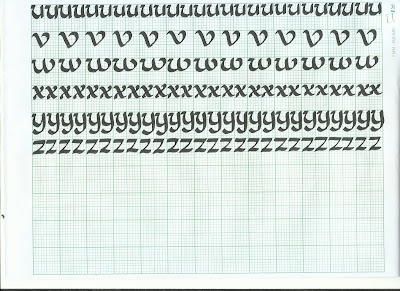 uuuuuuuuuuuuuuuuuuuuuuuuuu
v v v v v v v v v v v v v
w w w w w w w w w w w w w
xxxxxxxxxxxxxxxxxxxxxxxxxx
yyyyyyyyyyyyyyyyyyyyyyyyyy
zzzzzzzzzzzzzzzzzzzzzzzzzz